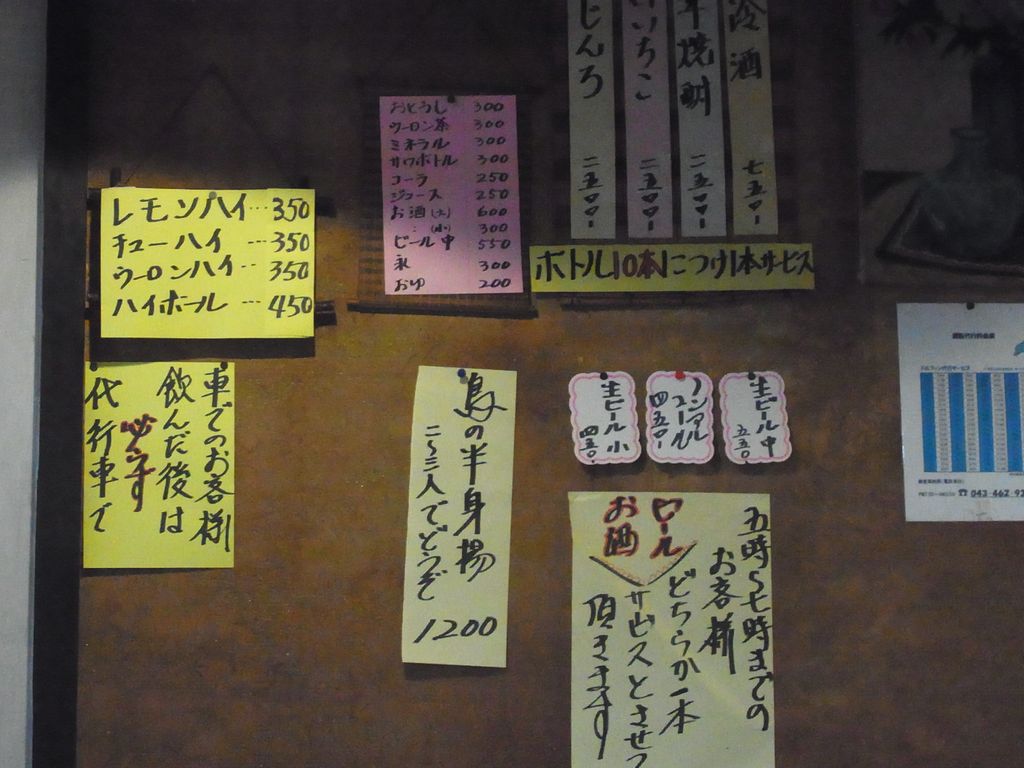 レモンハイ…350
チューハイ…350
ウーロンハイ…350
ハイボール…450
おとうし 300
ウーロン茶 300
ミネラル 300
サワボトル 300
コーラ 250
ジュース 250
お酒(大) 600
: (小) 300
ビール中 550
氷 300
おゆ 200
冷酒 七五〇-
焼酎 二五〇〇-
いいちこ 二五〇〇-
じんろ 二五〇〇-
ボトル10本につけ1本サービス
車でのお客様
飲んだ後は
必らず
代行車で
鳥の半身揚
二〜三人でどうぞ
1200
生ビール小
四五〇-
ノンアル
四五〇-
生ビール中
五五〇-
五時〜七時までの
お客様
ビール
お酒
どちらか一本
サービスとさせて
頂きます
043-462